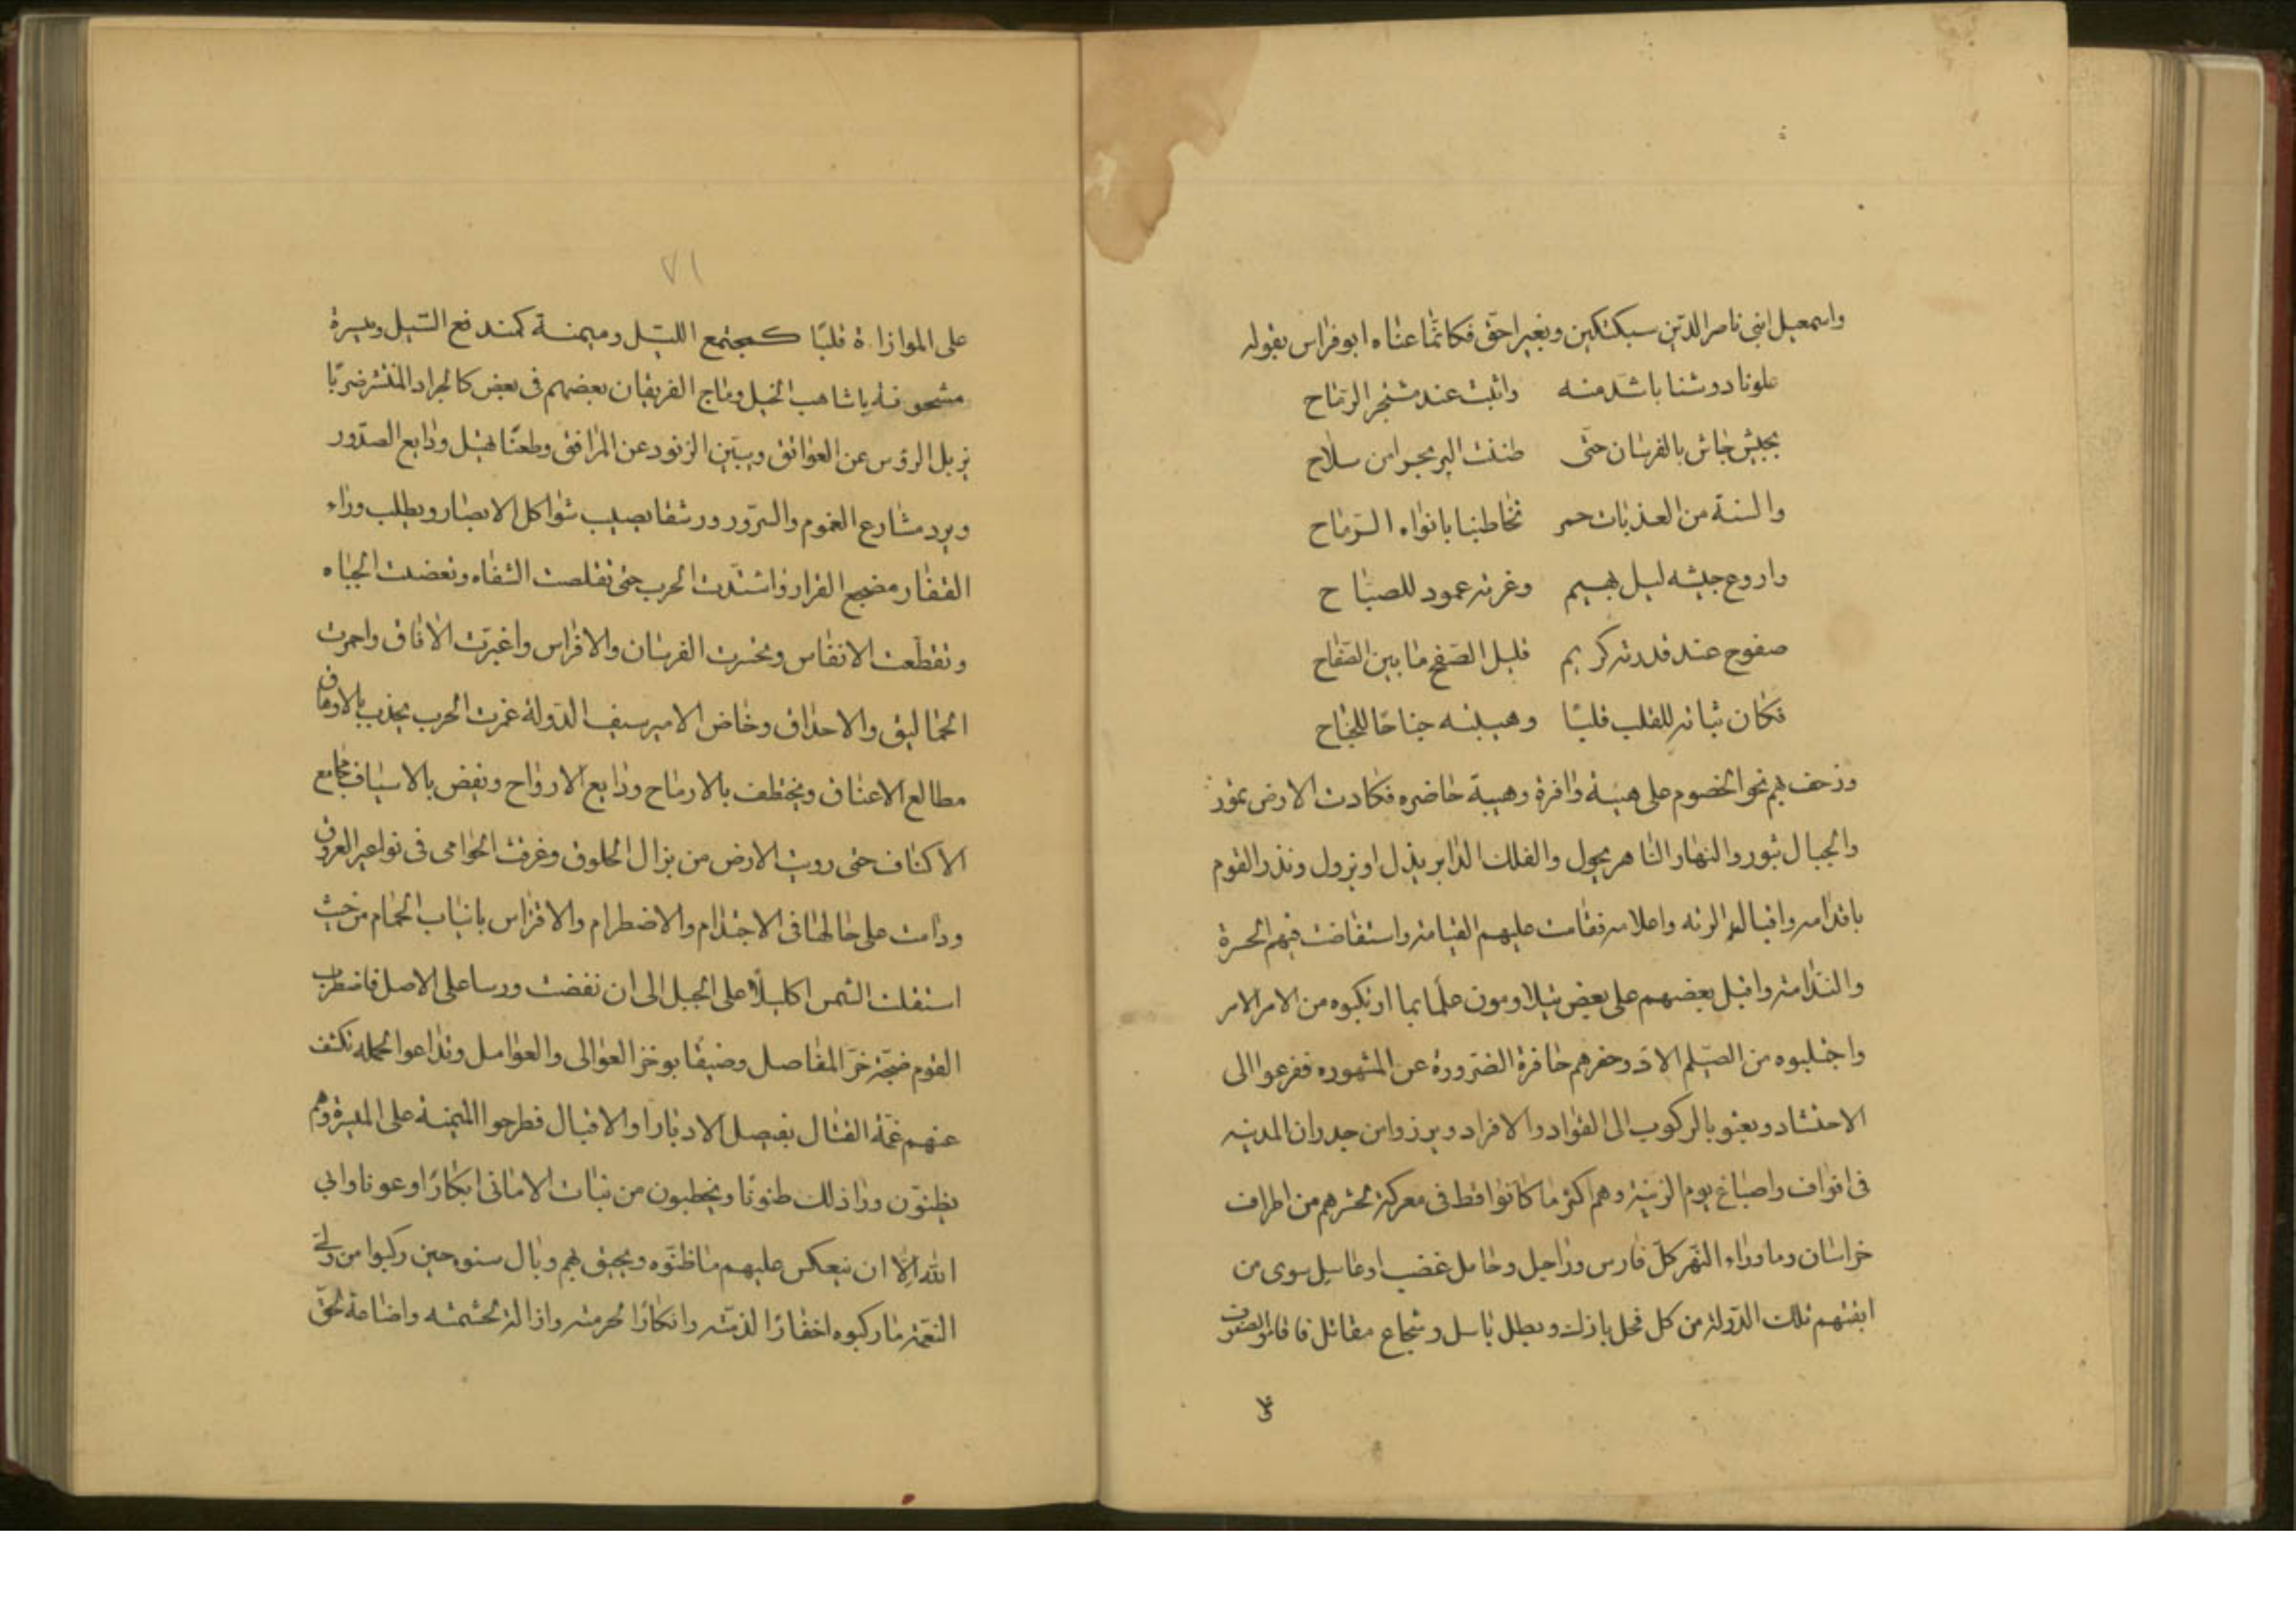 واسمعيل ابنى ناصر الدّين سبكتكين وبغيراحقّ فكانّما عناه ابوفراس بقوله
علونا دوشنا باشدّ منه واثبت عند مشتجر الرّماح
بجيش جاش بالفرسان حتّى ظننت البر بحرا من سلاح
والسنة من العذبات حمر تخاطبنا بافواه الرّماح
واروع جيشه ليل بهيم وغرته عمود للصباح
صفوح عند قدرته كريم قليل الصّفح ما بين الصّفاح
فكان ثباته للقلب قلبًا وهيبته جناحًا للجناح
وزحف بهم نحو الخصوم على هيئة وافرة وهيبة حاضره فكادت الارض تمور
والجبال تبور والنهار الناهر يحول والفلك الدابر يذل او يزول ونذر القوم
باقدامه واقباله واعلامه فقامت عليهم القيامة واستفاضت فيهم الحسرة
والندامة واقبل بعضهم على بعض يتلاومون علمًا بما ارتكبوه من الامر الامر
واجتلبوه من الصّيلم الادّ وحفزهم حافزة الضّرورة عن المشهوره ففزعوا الى
الاحتشاد وبعثو بالركوب الى القواد والافراد وبرزوا من جدران المدينه
فى افواف واصباغ يوم الزينة وهم اكثر ما كانوا قط فى معركة تحشرهم من اطراف
خراسان وماوراء النّهر كلّ فارس وراجل وحامل عضب او عاسل سوى من
ابقتهم تلك الدّولة من كل فحل باذل وبطل باسل وشجاع مقاتل فاقاموا الصّفوف
على
٧١
على الموازاة قلبًا كمجتمع الليل وميمنة كمندفع السّيل وميسرة
مشحونة باشاهب الخيل وماج الفريقان بعضهم فى بعض كالجراد المنتشر ضربًا
يزيل الرؤس عن العواتق ويبين الزنود عن المرافق وطعنًا يهتك ودايع الصدّور
ويرد مشارع الغموم والسّرور ورشقا يصيب شواكل الابصار ويطلب وراء
القفار مضجع القرار واشتدّت الحرب حتى تقلصت الشفاه وتغضنت الجباه
وتقطّعت الانفاس وتحسرت الفرسان والافراس واغبرّت الافاق واحمرت
الحماليق والاحداق وخاض الامير سيف الدّولة غمرت الحرب يجذب بالاوهاق
مطالع الاعناق ويختطف بالارماح ودايع الارواح ويفض بالاسياف مجامع
الاكتاف حتى رويت الارض من بزال الحلوق وغرقت الحوامى فى نواعير العروق
ودامت على حالها فى الاحتدام والاضطرام والافتراس بانياب الحمام من حيث
استقلت الشمس اكليلًا على الجبل الى ان نفضت ورسا على الاصل فاضطرب
القوم ضجّة حزّ المفاصل وضيقًا بوخز العوالى والعوامل وتداعوا لحملة تكشف
عنهم غمّة القتال بفيصل الادبار او الاقبال فطرحوا الميمنة على الميسرة وهم
يظنوّن وراذلك ظنونًا ويخطبون من بنات الامانى ابكارًا وعونا وابى
الله الّا ان ينعكس عليهم ما ظنوّه ويحيق بهم وبال سنوه حين ركبوا من ولى
النعمة ما ركبوه اخفارًا لذمّته وانكارًا لحرمته وازالة لحشمته واضاعة لحقّ